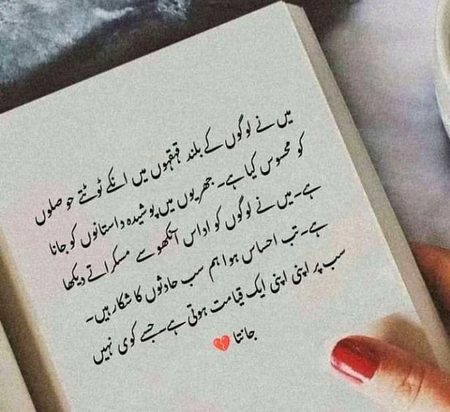 میں نے لوگوں کے بلند قہقہوں میں انکے ٹوٹتے حوصلوں
کو محسوس کیا ہے۔ جھریوں میں پوشیدہ داستانوں کو جانا
ہے۔ میں نے لوگوں کو اداس آنکھو سے مسکراتے دیکھا
ہے۔ تب احساس ہوا ہم سب حادثوں کا شکار ہیں۔
سب پر اپنی اپنی ایک قیامت ہوتی ہے جسے کوی نہیں
جانتا 💔